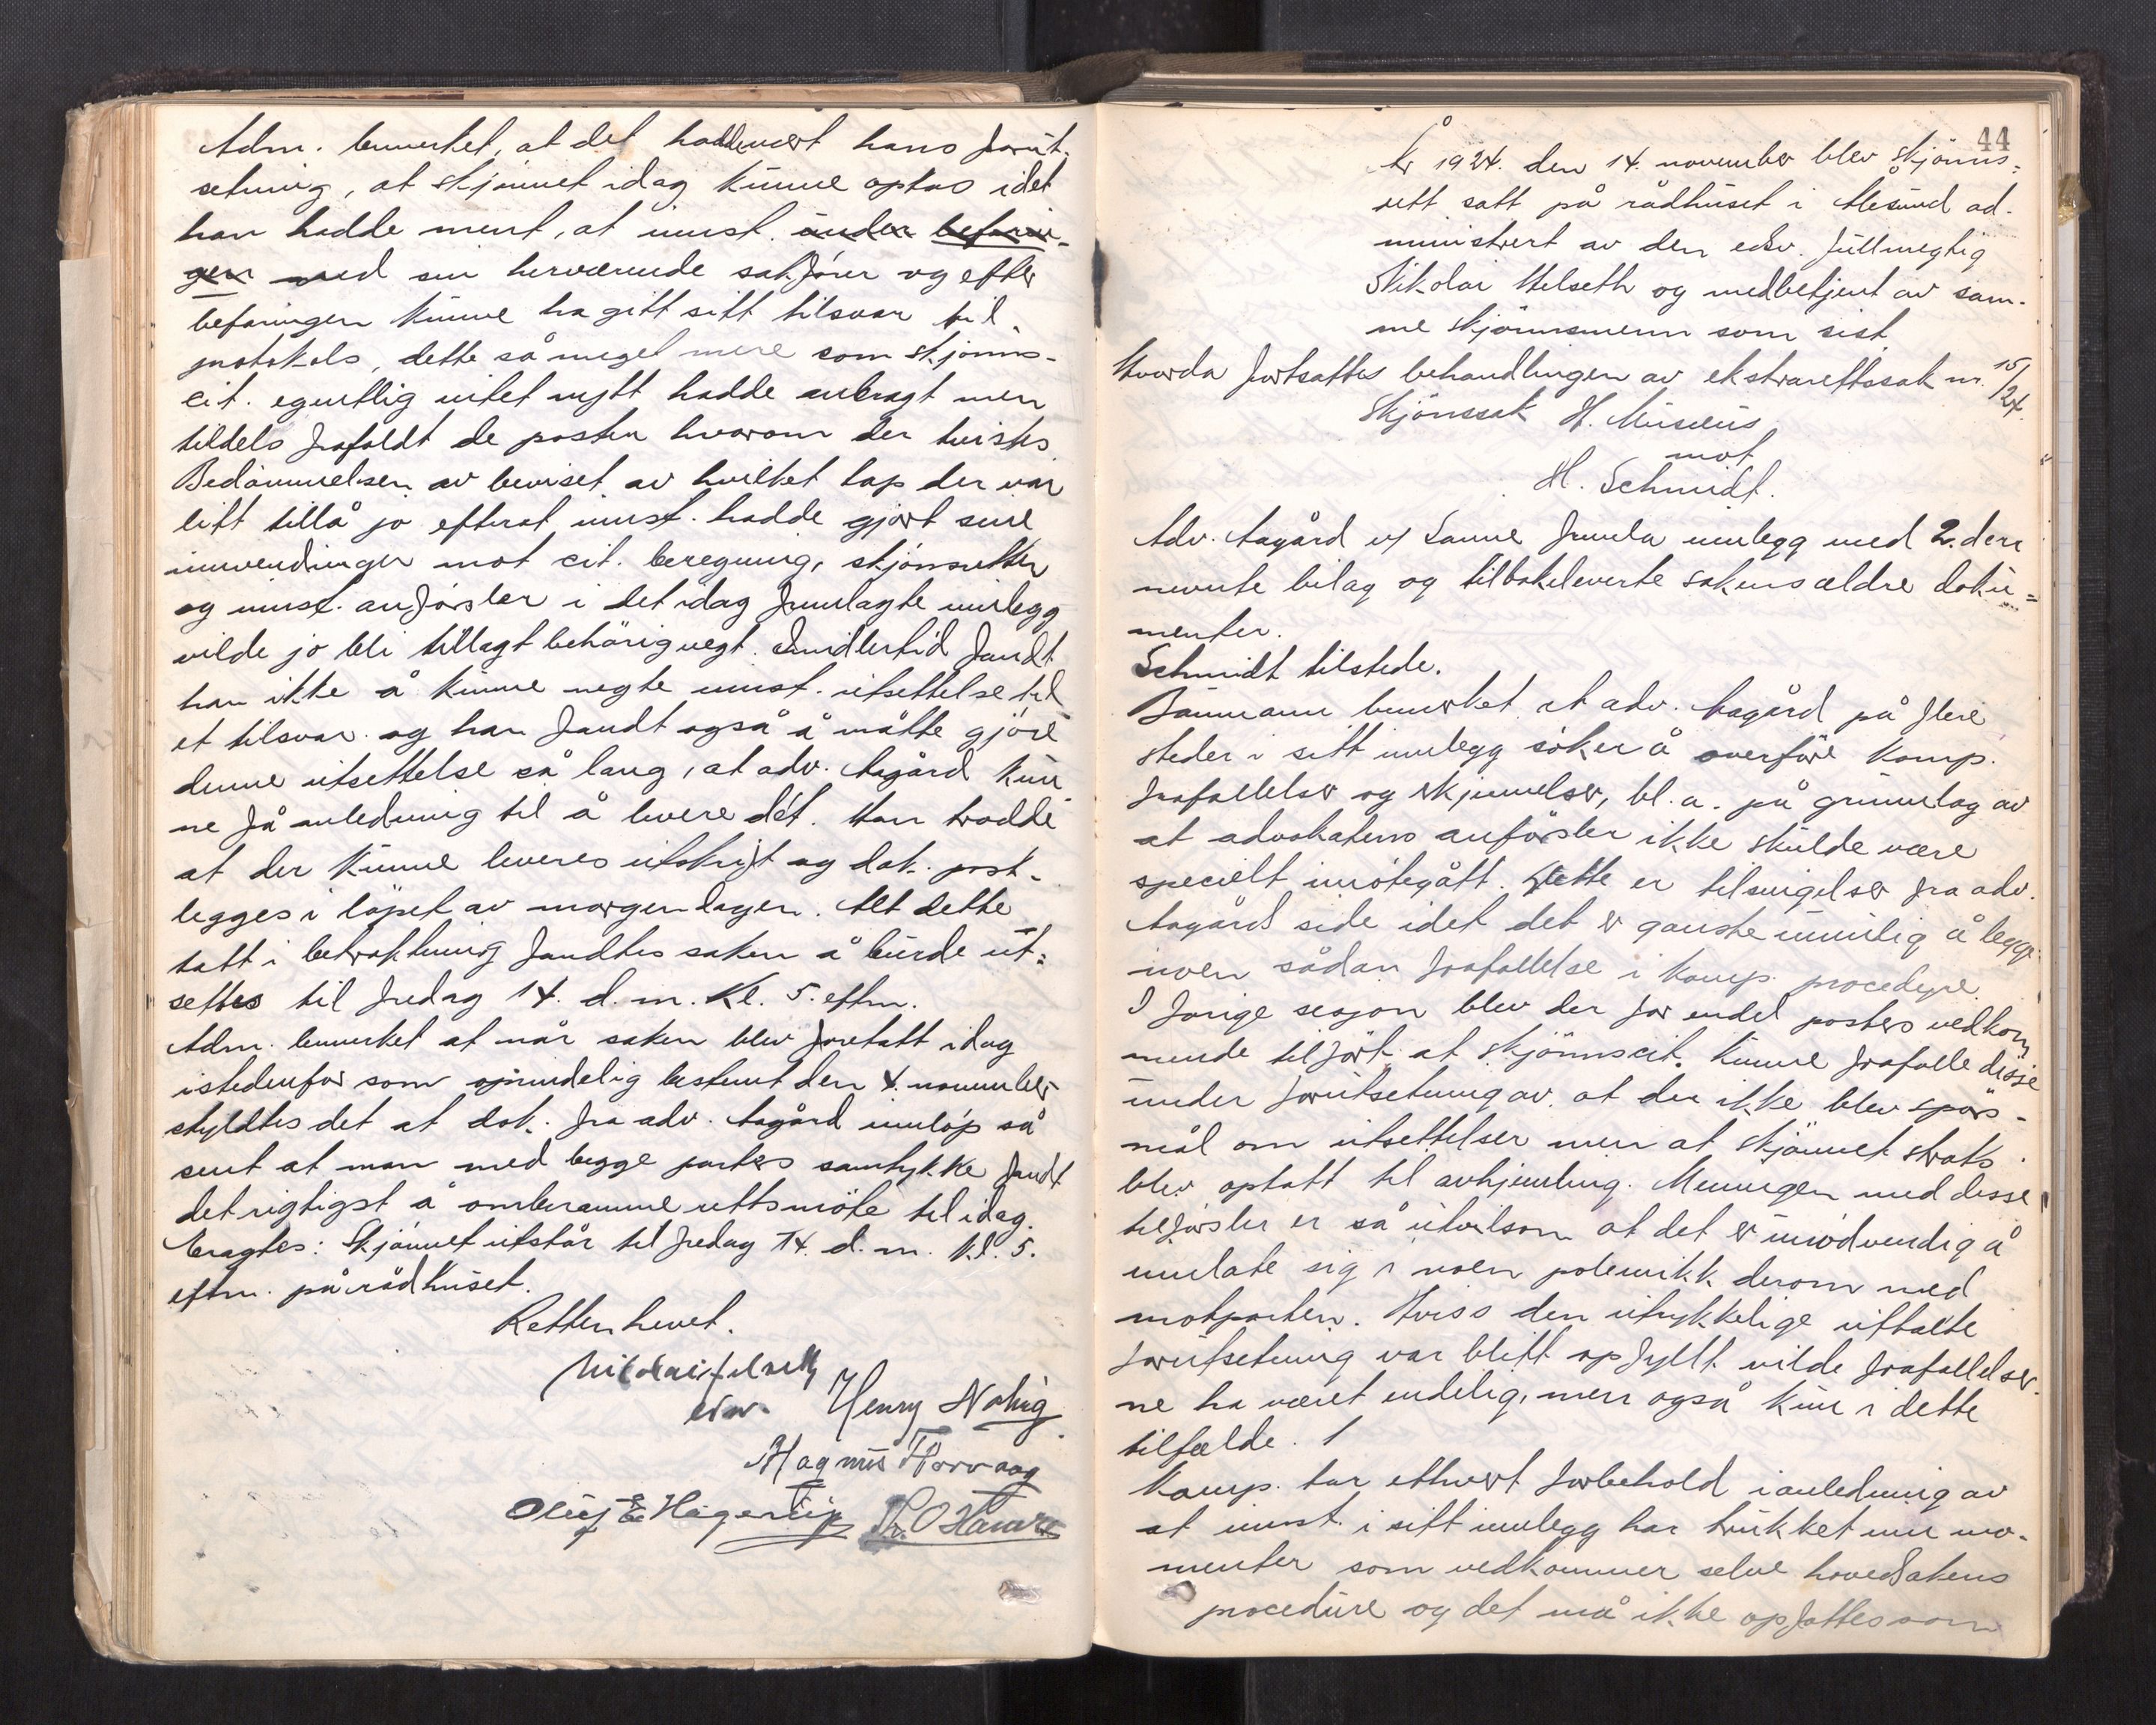 Adm. bemerket, at det hadde vært hans forut-
setning, at skjønnet idag kunne optas idet
han hadde ment, at innst. under befarin-
gen med sin herværende sakfører og efter
befaringen kunne ha gitt sitt tilsvar til
protokols, dette så meget mere som skjønns-
cit. egentlig intet nytt hadde anbragt men
tildels frafaldt de poster hvorom der tvistes.
Bedømmelsen av beviset av hvilket tap der var
litt tillå jo efterat innst. hadde gjort sine
innvendinger mot cit. beregning, skjønsretten
og innst. anførsler i det idag fremlagte innlegg
vilde jo bli tillagt behørig vegt. Imidlertid fandt
han ikke å kunne negte innst. utsettelse til
et tilsvar og han fandt også å måtte gjøre
denne utsettelse så lang, at adv. Aagård kun-
ne få anledning til å levere det. Han trodde
at der kunne leveres utskrift og dok. post-
legges i løpet av morgendagen. Alt dette
tatt i betraktning fandtes saken å burde ut-
settes til fredag 14. d. m. kl. 5. eftm.
Adm. bemerket at når saken blev foretatt idag
istedenfor som oprindelig bestemt den 4. november
skyldtes det at dok. fra adv. Aagård innløp så
sent at man med begge parters samtykke fandt
det rigtigst å omberamme rettsmøte til idag.
Eragtes: Skjønnet utstår til fredag 14. d. m. kl. 5.
eftm. på rådhuset.
Retten hevet.
Nikolai Helseth
edsv. Henry Nohig
Magnus Horvaag
Oluf E Hagerup O Hamre
44
År 1924. den 14. november blev skjønns-
rett satt på rådhuset i Ålesund ad-
ministrert av den edsv. fullmegtig
Nikolai Helseth og medbetjent av sam-
me skjønnsmenn som sist
Hvorda fortsattes behandlingen av ekstrarettssak nr. 15/24.
Skjønssak H. Museus
mot
H. Schmidt.
Adv. Aagård v/ Sanne fremla innlegg med 2. deri
nevnte bilag og tilbakeleverte sakens ældre doku-
menter.
Schmidt tilstede.
Baumann bemerket at adv. Aagård på flere
steder i sitt innlegg søker å overføre komp.
frafallelser og erkjennelser, bl. a. på grunnlag av
at advokatens anførsler ikke skulde være
specielt imøtegått. Dette er tilsnigelser fra adv.
Aagårds side idet det er ganske umulig å legge
noen sådan frafallelse i komp. procedyre
I forige sesjon blev der for endel posters vedkom
mende tilført at skjønnscit. kunne frafalle disse
under forutsetning av at der ikke blev spørs-
mål om utsettelser men at skjønnet straks
blev optatt til avhjemling. Meningen med disse
tilførsler er så utvilsom at det er unødvendig å
innlate sig i noen polemikk derom med
motparten. Hviss den utrykkelige uttalte
forutsetning var blitt opfyllt vilde frafallelser-
ne ha været endelig, men også kun i dette
tilfælde.
Komp. tar ethvert forbehold i anledning av
at innst. i sitt innlegg har trukket inn mo-
menter som vedkommer selve hovedsakens
procedure og det må ikke opfattes som